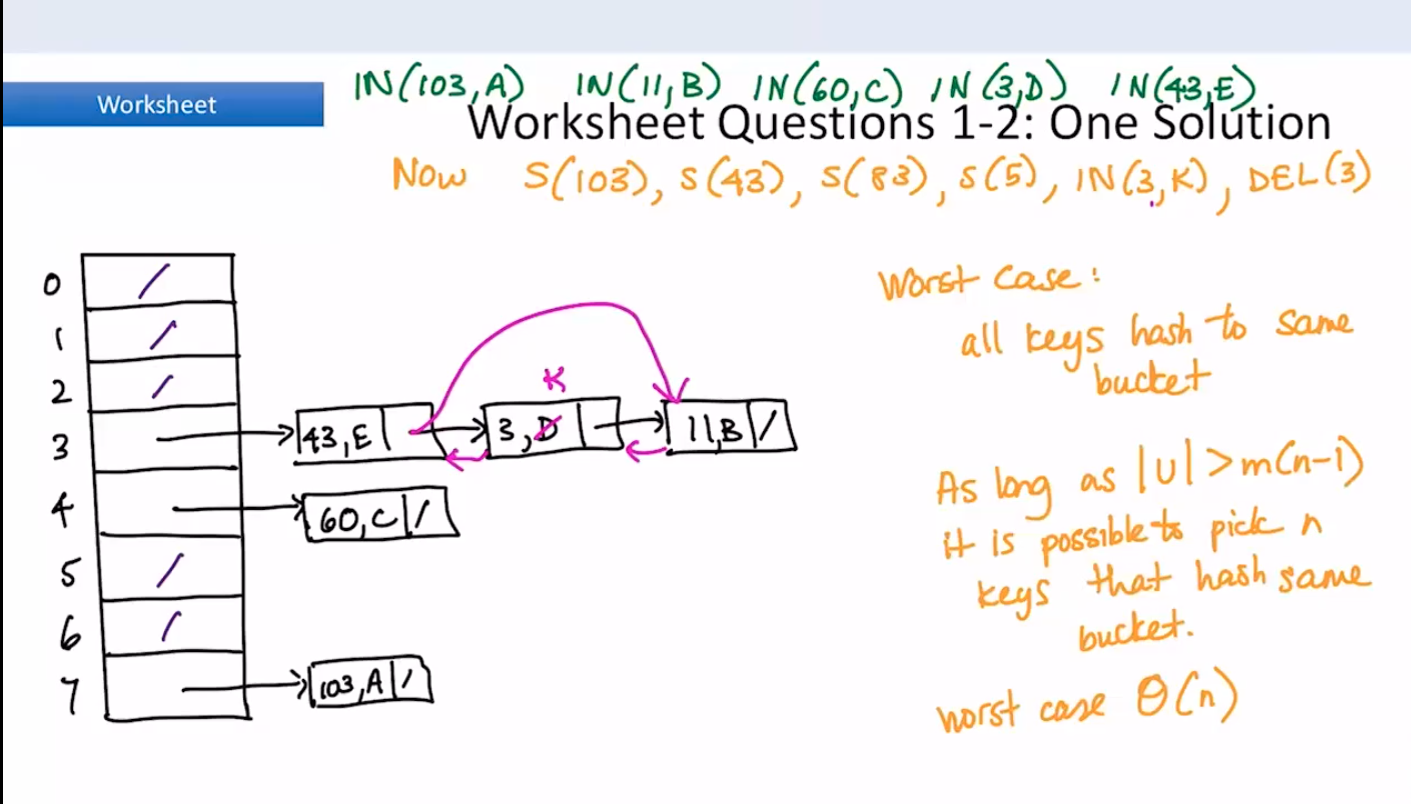 IN(103,A) IN(11,B) IN(60,C) IN(3,D) IN(43,E)
Worksheet
Worksheet Questions 1-2: One Solution
Now S(103), S(43), S(83), S(5), IN(3,K), DEL(3)
0 /
1 /
2 /
K
3 43,E 3,D 11,B /
4 60,C /
5 /
6 /
7 103,A /
Worst case:
all keys hash to same
bucket
As long as |U| > m(n-1)
it is possible to pick n
keys that hash same
bucket.
worst case Θ(n)